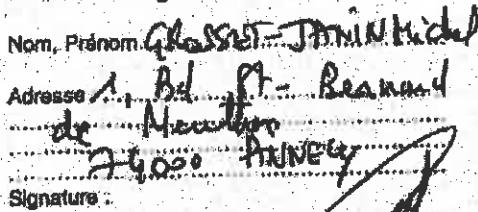 Nom, Prénom GROSSET-JANIN Michel
Adresse 1, Bd St-Bernard
de Menthon
74000 ANNECY
Signature :